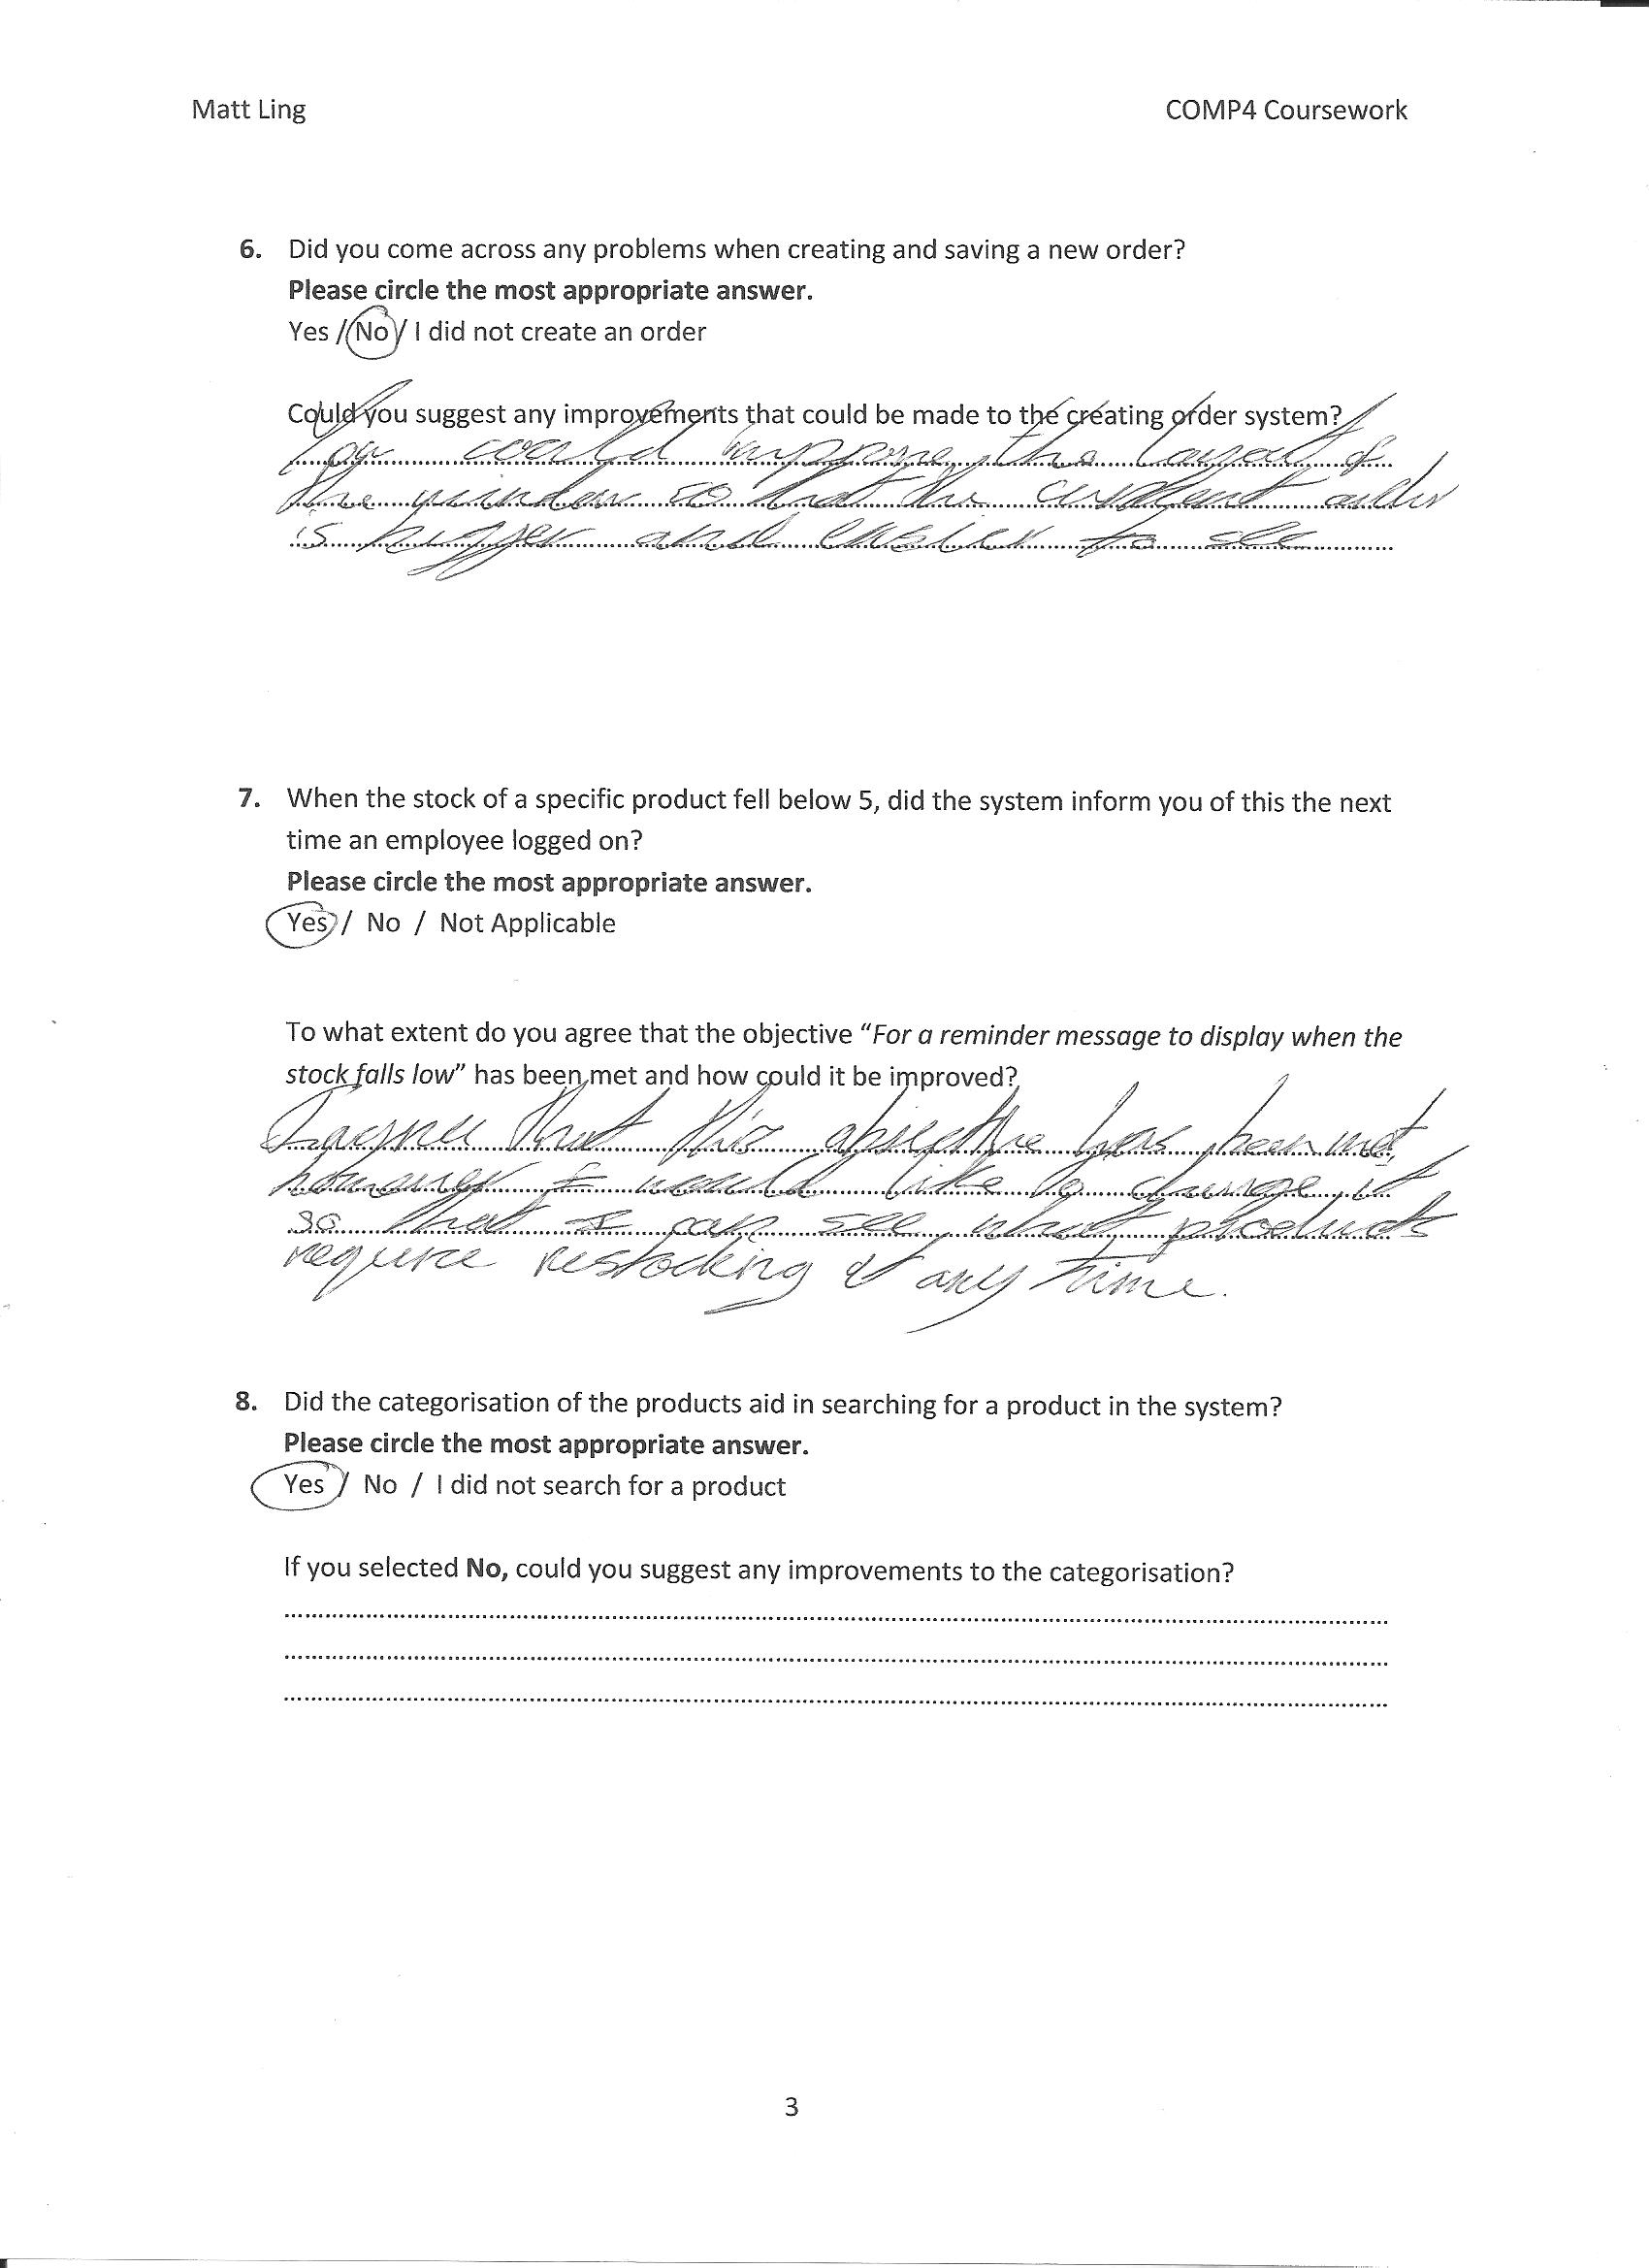 Matt Ling
COMP4 Coursework
6. Did you come across any problems when creating and saving a new order?
Please circle the most appropriate answer.
Yes / No / I did not create an order
Could you suggest any improvements that could be made to the creating order system?
You could improve the layout of
the window so that the current order
is bigger and easier to see
7. When the stock of a specific product fell below 5, did the system inform you of this the next
time an employee logged on?
Please circle the most appropriate answer.
Yes / No / Not Applicable
To what extent do you agree that the objective “For a reminder message to display when the
stock falls low” has been met and how could it be improved?
I agree that this objective has been met,
however I would like to change it
so that I can see what products
require restocking at any time.
8. Did the categorisation of the products aid in searching for a product in the system?
Please circle the most appropriate answer.
Yes / No / I did not search for a product
If you selected No, could you suggest any improvements to the categorisation?
3